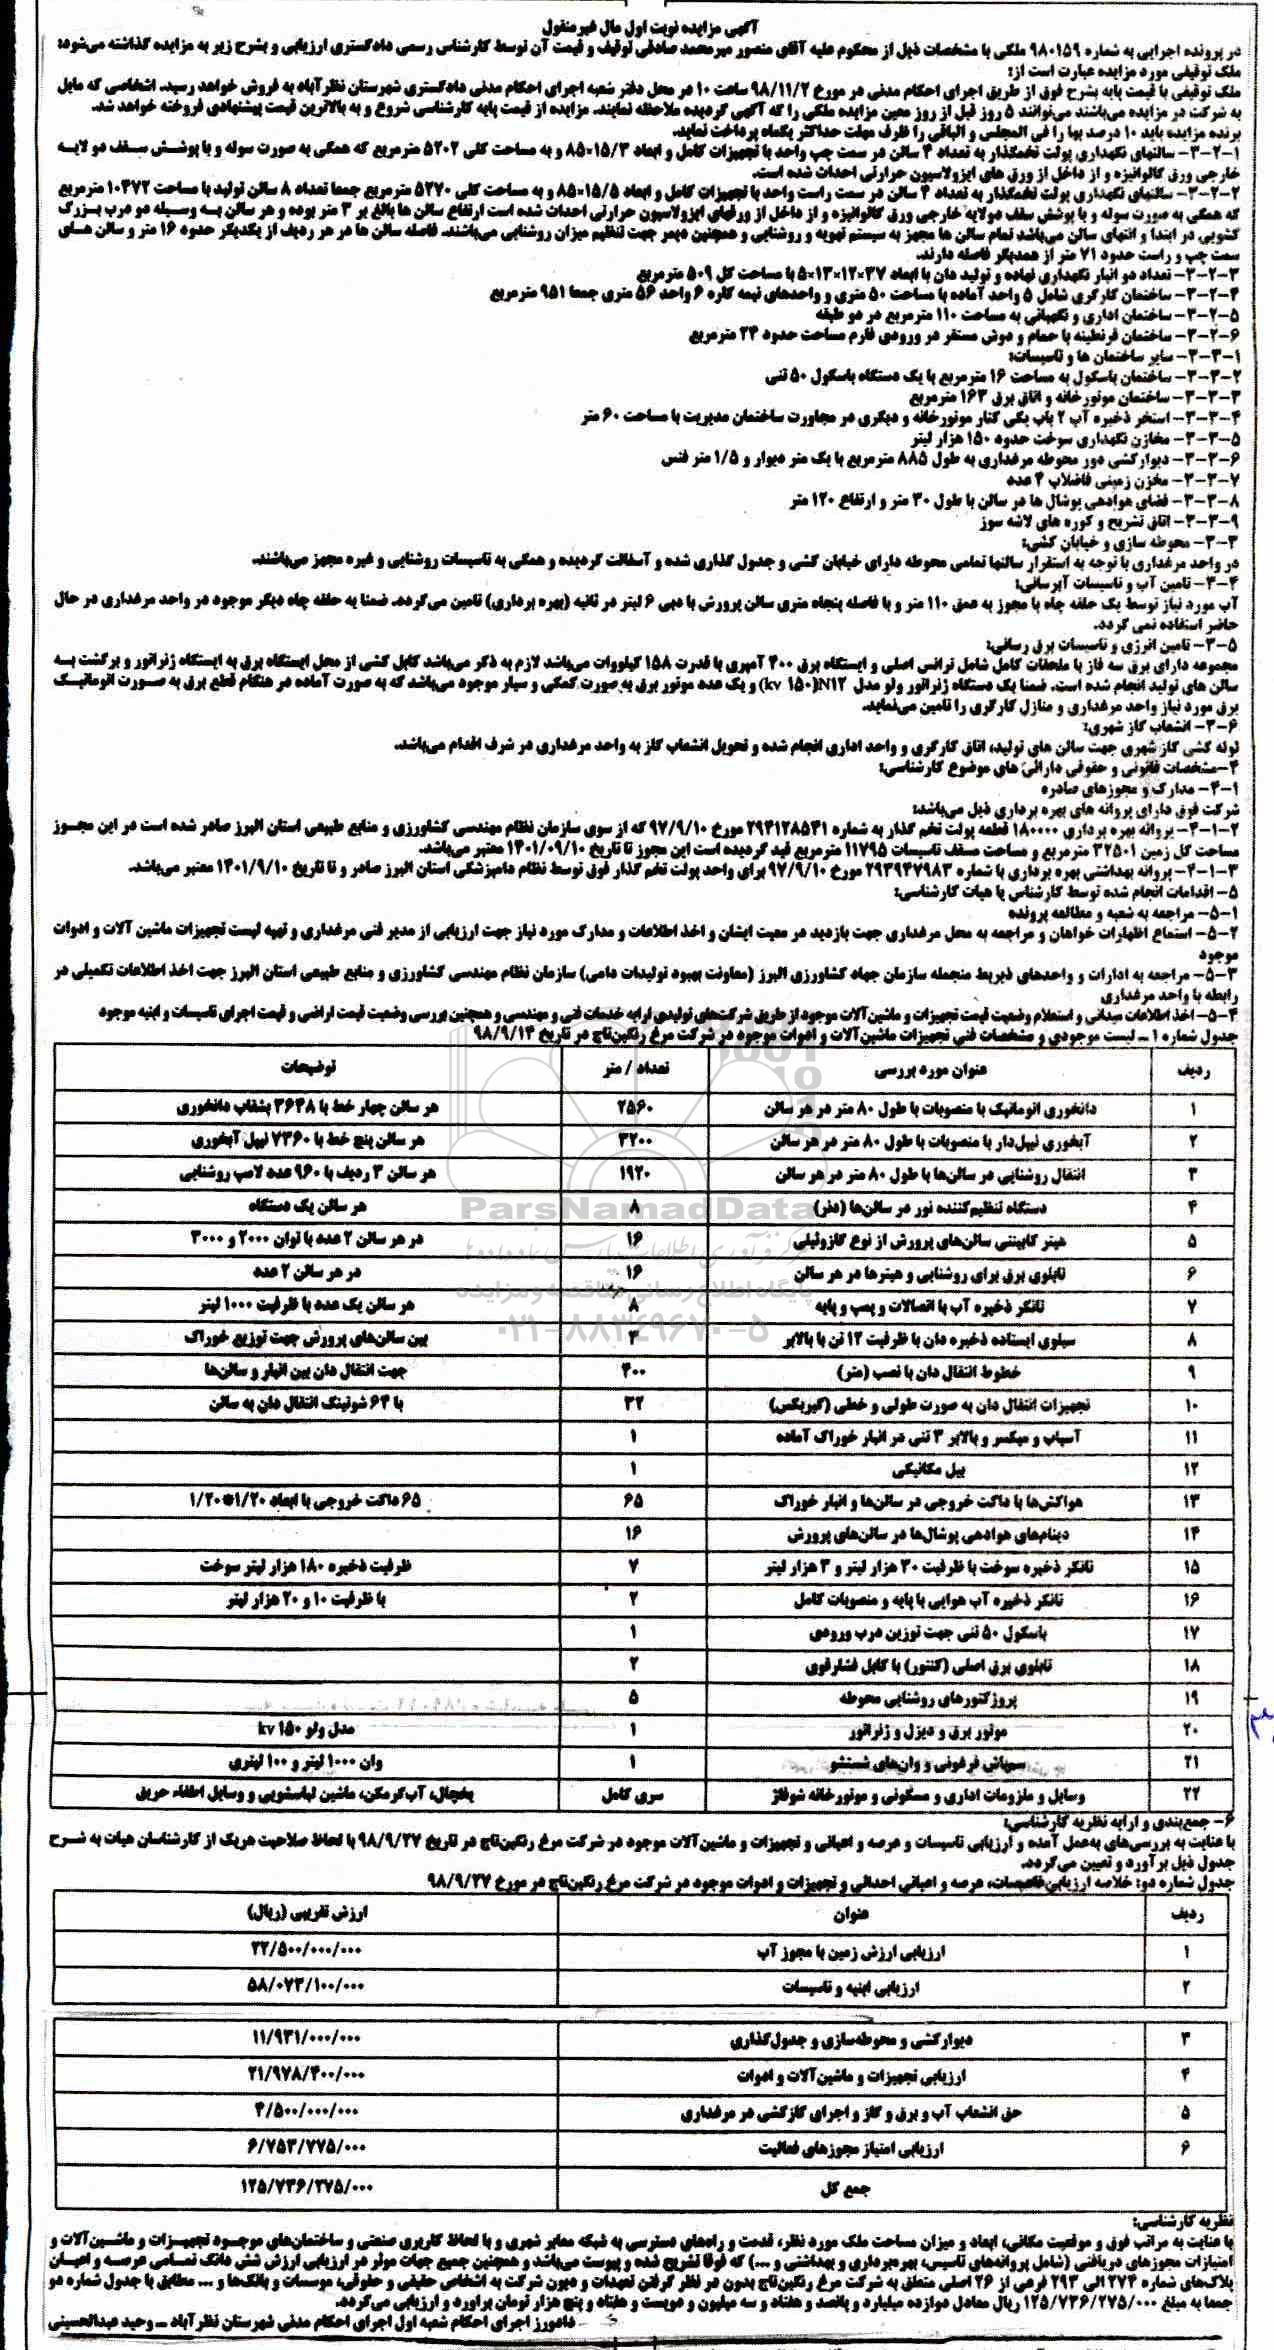 آگهی مزایده نوبت اول مال غیرمنقول
در پرونده اجرایی به شماره ۹۸۰۱۵۹ ملکی با مشخصات ذیل از محکوم علیه آقای منصور میرمحمد صادقی توقیف و قیمت آن توسط کارشناس رسمی دادگستری ارزیابی و بشرح زیر به مزایده گذاشته می‌شود:
ملک توقیفی مورد مزایده عبارت است از:
ملک توقیفی با قیمت پایه بشرح فوق از طریق اجرای احکام مدنی در مورخ ۹۸/۱۱/۲ ساعت ۱۰ در محل دفتر شعبه اجرای احکام مدنی دادگستری شهرستان نظرآباد به فروش خواهد رسید. اشخاصی که مایل
به شرکت در مزایده می‌باشند می‌توانند ۵ روز قبل از روز معین مزایده ملکی را که آگهی گردیده ملاحظه نمایند. مزایده از قیمت پایه کارشناسی شروع و به بالاترین قیمت پیشنهادی فروخته خواهد شد.
برنده مزایده باید ۱۰ درصد بها را فی المجلس و الباقی را ظرف مهلت حداکثر یکماه پرداخت نماید.
۳-۲-۱- سالنهای نگهداری پولت تخمگذار به تعداد ۴ سالن در سمت چپ واحد با تجهیزات کامل و ابعاد ۱۵/۳×۸۵ و به مساحت کلی ۵۲۰۲ مترمربع که همگی به صورت سوله و با پوشش سقف دو لایه
خارجی ورق گالوانیزه و از داخل از ورق های ایزولاسیون حرارتی احداث شده است.
۳-۲-۲- سالنهای نگهداری پولت تخمگذار به تعداد ۴ سالن در سمت راست واحد با تجهیزات کامل و ابعاد ۱۵/۵×۸۵ و به مساحت کلی ۵۲۷۰ مترمربع جمعا تعداد ۸ سالن تولید با مساحت ۱۰۴۷۲ مترمربع
که همگی به صورت سوله و با پوشش سقف دولایه خارجی ورق گالوانیزه و از داخل از ورقهای ایزولاسیون حرارتی احداث شده است ارتفاع سالن ها بالغ بر ۳ متر بوده و هر سالن به وسیله دو درب بزرگ
کشویی در ابتدا و انتهای سالن می‌باشد تمام سالن ها مجهز به سیستم تهویه و روشنایی و همچنین دیمر جهت تنظیم میزان روشنایی می‌باشند. فاصله سالن ها در هر ردیف از یکدیگر حدود ۱۶ متر و سالن های
سمت چپ و راست حدود ۷۱ متر از همدیگر فاصله دارند.
۳-۲-۳- تعداد دو انبار نگهداری نهاده و تولید دان با ابعاد ۳۷×۱۲×۱۳×۵ با مساحت کل ۵۰۹ مترمربع
۳-۲-۴- ساختمان کارگری شامل ۵ واحد آماده با مساحت ۵۰ متری و واحدهای نیمه کاره ۶ واحد ۵۶ متری جمعا ۹۵۱ مترمربع
۳-۲-۵- ساختمان اداری و نگهبانی به مساحت ۱۱۰ مترمربع در دو طبقه
۳-۲-۶- ساختمان قرنطینه با حمام و دوش مستقر در ورودی فارم مساحت حدود ۲۴ مترمربع
۳-۳-۱- سایر ساختمان ها و تاسیسات:
۳-۳-۲- ساختمان باسکول به مساحت ۱۶ مترمربع با یک دستگاه باسکول ۵۰ تنی
۳-۳-۳- ساختمان موتورخانه و اتاق برق ۱۶۳ مترمربع
۳-۳-۴- استخر ذخیره آب ۲ باب یکی کنار موتورخانه و دیگری در مجاورت ساختمان مدیریت با مساحت ۶۰ متر
۳-۳-۵- مخازن نگهداری سوخت حدود ۱۵۰ هزار لیتر
۳-۳-۶- دیوارکشی دور محوطه مرغداری به طول ۸۸۵ مترمربع با یک متر دیوار و ۱/۵ متر فنس
۳-۳-۷- مخزن زمینی فاضلاب ۴ عدد
۳-۳-۸- فضای هوادهی پوشال ها در سالن با طول ۳۰ متر و ارتفاع ۱۲۰ متر
۳-۳-۹- اتاق تشریح و کوره های لاشه سوز
۳-۳- محوطه سازی و خیابان کشی:
در واحد مرغداری با توجه به استقرار سالنها تمامی محوطه دارای خیابان کشی و جدول گذاری شده و آسفالت گردیده و همگی به تاسیسات روشنایی و غیره مجهز می‌باشند.
۳-۴- تامین آب و تاسیسات آبرسانی:
آب مورد نیاز توسط یک حلقه چاه با مجوز به عمق ۱۱۰ متر و با فاصله پنجاه متری سالن پرورش با دبی ۶ لیتر در ثانیه (بهره برداری) تامین می‌گردد. ضمنا یه حلقه چاه دیگر موجود در واحد مرغداری در حال
حاضر استفاده نمی گردد.
۳-۵- تامین انرژی و تاسیسات برق رسانی:
مجموعه دارای برق سه فاز با ملحقات کامل شامل ترانس اصلی و ایستگاه برق ۴۰۰ آمپری با قدرت ۱۵۸ کیلووات می‌باشد لازم به ذکر می‌باشد کابل کشی از محل ایستگاه برق به ایستگاه ژنراتور و برگشت به
سالن های تولید انجام شده است. ضمنا یک دستگاه ژنراتور ولو مدل N12(kv ۱۵۰) و یک عدد موتور برق به صورت کمکی و سیار موجود می‌باشد که به صورت آماده در هنگام قطع برق به صورت اتوماتیک
برق مورد نیاز واحد مرغداری و منازل کارگری را تامین می‌نماید.
۳-۶- انشعاب گاز شهری:
لوله کشی گاز شهری جهت سالن های تولید، اتاق کارگری و واحد اداری انجام شده و تحویل انشعاب گاز به واحد مرغداری در شرف اقدام می‌باشد.
۴-مشخصات قانونی و حقوقی دارائی های موضوع کارشناسی:
۴-۱- مدارک و مجوزهای صادره
شرکت فوق دارای پروانه های بهره برداری ذیل می‌باشد:
۴-۱-۲- پروانه بهره برداری ۱۸۰۰۰۰ قطعه پولت تخم گذار به شماره ۲۹۴۱۲۸۵۴۱ مورخ ۹۷/۹/۱۰ که از سوی سازمان نظام مهندسی کشاورزی و منابع طبیعی استان البرز صادر شده است در این مجوز
مساحت کل زمین ۳۲۵۰۱ مترمربع و مساحت مسقف تاسیسات ۱۱۷۹۵ مترمربع قید گردیده است این مجوز تا تاریخ ۱۴۰۱/۰۹/۱۰ معتبر می‌باشد.
۴-۱-۳- پروانه بهداشتی بهره برداری با شماره ۲۹۳۹۴۷۹۸۳ مورخ ۹۷/۹/۱۰ برای واحد پولت تخم گذار فوق توسط نظام دامپزشکی استان البرز صادر و تا تاریخ ۱۴۰۱/۹/۱۰ معتبر می‌باشد.
۵- اقدامات انجام شده توسط کارشناس یا هیات کارشناسی:
۵-۱- مراجعه به شعبه و مطالعه پرونده
۵-۲- استماع اظهارات خواهان و مراجعه به محل مرغداری جهت بازدید در معیت ایشان و اخذ اطلاعات و مدارک مورد نیاز جهت ارزیابی از مدیر فنی مرغداری و تهیه لیست تجهیزات ماشین آلات و ادوات
موجود
۵-۳- مراجعه به ادارات و واحدهای ذیربط منجمله سازمان جهاد کشاورزی البرز (معاونت بهبود تولیدات دامی) سازمان نظام مهندسی کشاورزی و منابع طبیعی استان البرز جهت اخذ اطلاعات تکمیلی در
رابطه با واحد مرغداری
۵-۴- اخذ اطلاعات میدانی و استعلام وضعیت قیمت تجهیزات و ماشین‌آلات موجود از طریق شرکت‌های تولیدی ارایه خدمات فنی و مهندسی و همچنین بررسی وضعیت قیمت اراضی و قیمت اجرای تاسیسات و ابنیه موجود
جدول شماره ۱ ـ لیست موجودی و مشخصات فنی تجهیزات ماشین‌آلات و ادوات موجود در شرکت مرغ رنگین‌تاج در تاریخ ۹۸/۹/۱۴
ردیف عنوان مورد بررسی تعداد / متر توضیحات
۱ دانخوری اتوماتیک با منصوبات با طول ۸۰ متر در هر سالن ۲۵۶۰ هر سالن چهار خط با ۳۶۴۸ بشقاب دانخوری
۲ آبخوری نیپل‌دار با منصوبات با طول ۸۰ متر در هر سالن ۳۲۰۰ هر سالن پنج خط با ۷۳۶۰ نیپل آبخوری
۳ انتقال روشنایی در سالن‌ها با طول ۸۰ متر در هر سالن ۱۹۲۰ هر سالن ۳ ردیف با ۹۶۰ عدد لامپ روشنایی
۴ دستگاه تنظیم‌کننده نور در سالن‌ها (دنر) ۸ هر سالن یک دستگاه
۵ هیتر کابینتی سالن‌های پرورش از نوع گازوئیلی ۱۶ در هر سالن ۲ عدد با توان ۲۰۰۰ و ۳۰۰۰
۶ تابلوی برق برای روشنایی و هیترها در هر سالن ۱۶ در هر سالن ۲ عدد
۷ تانکر ذخیره آب با اتصالات و پمپ و پایه ۸ هر سالن یک عدد با ظرفیت ۱۰۰۰ لیتر
۸ سیلوی ایستاده ذخیره دان با ظرفیت ۱۲ تن با بالابر ۳ بین سالن‌های پرورش جهت توزیع خوراک
۹ خطوط انتقال دان با نصب (متر) ۴۰۰ جهت انتقال دان بین انبار و سالن‌ها
۱۰ تجهیزات انتقال دان به صورت طولی و خطی (گیربکس) ۳۲ با ۶۴ شوتینگ انتقال دان به سالن
۱۱ آسیاب و میکسر و بالابر ۳ تنی در انبار خوراک آماده ۱
۱۲ بیل مکانیکی ۱
۱۳ هواکش‌ها با داکت خروجی در سالن‌ها و انبار خوراک ۶۵ ۶۵ داکت خروجی با ابعاد ۱/۲۰*۱/۲۰
۱۴ دینام‌های هوادهی پوشال‌ها در سالن‌های پرورش ۱۶
۱۵ تانکر ذخیره سوخت با ظرفیت ۳۰ هزار لیتر و ۳ هزار لیتر ۷ ظرفیت ذخیره ۱۸۰ هزار لیتر سوخت
۱۶ تانکر ذخیره آب هوایی با پایه و منصوبات کامل ۲ با ظرفیت ۱۰ و ۲۰ هزار لیتر
۱۷ باسکول ۵۰ تنی جهت توزین درب ورودی ۱
۱۸ تابلوی برق اصلی (کنتور) با کابل فشارقوی ۲
۱۹ پروژکتورهای روشنایی محوطه ۵
۲۰ موتور برق و دیزل و ژنراتور ۱ مدل ولو ۱۵۰ kv
۲۱ سمپاش فرغونی و وان‌های شستشو ۱ وان ۱۰۰۰ لیتر و ۱۰۰ لیتری
۲۲ وسایل و ملزومات اداری و مسکونی و موتورخانه شوفاژ سری کامل یخچال، آب‌گرمکن، ماشین لباسشویی و وسایل اطفاء حریق
۶- جمع‌بندی و ارایه نظریه کارشناسی:
با عنایت به بررسی‌های به‌عمل آمده و ارزیابی تاسیسات و عرصه و اعیانی و تجهیزات و ماشین‌آلات موجود در شرکت مرغ رنگین‌تاج در تاریخ ۹۸/۹/۲۷ با لحاظ صلاحیت هریک از کارشناسان هیات به شرح
جدول ذیل برآورد و تعیین می‌گردد.
جدول شماره دو: خلاصه ارزیابی تاسیسات، عرصه و اعیانی احداثی و تجهیزات و ادوات موجود در شرکت مرغ رنگین‌تاج در مورخ ۹۸/۹/۲۷
ردیف عنوان ارزش تقریبی (ریال)
۱ ارزیابی ارزش زمین با مجوز آب ۲۲/۵۰۰/۰۰۰/۰۰۰
۲ ارزیابی ابنیه و تاسیسات ۵۸/۰۷۳/۱۰۰/۰۰۰
۳ دیوارکشی و محوطه‌سازی و جدول‌گذاری ۱۱/۹۳۱/۰۰۰/۰۰۰
۴ ارزیابی تجهیزات و ماشین‌آلات و ادوات ۲۱/۹۷۸/۴۰۰/۰۰۰
۵ حق انشعاب آب و برق و گاز و اجرای گازکشی در مرغداری ۴/۵۰۰/۰۰۰/۰۰۰
۶ ارزیابی امتیاز مجوزهای فعالیت ۶/۷۵۳/۷۷۵/۰۰۰
جمع کل ۱۲۵/۷۳۶/۲۷۵/۰۰۰
نظریه کارشناسی:
با عنایت به مراتب فوق و موقعیت مکانی، ابعاد و میزان مساحت ملک مورد نظر، قدمت و راه‌های دسترسی به شبکه معابر شهری و با لحاظ کاربری صنعتی و ساختمان‌های موجود تجهیزات و ماشین‌آلات و
امتیازات مجوزهای دریافتی (شامل پروانه‌های تاسیس، بهره‌برداری و بهداشتی و ...) که فوقا تشریح شده و پیوست می‌باشد و همچنین جمیع جهات موثر در ارزیابی ارزش شش دانگ تمامی عرصه و اعیان
پلاک‌های شماره ۲۷۴ الی ۲۹۳ فرعی از ۲۶ اصلی متعلق به شرکت مرغ رنگین‌تاج بدون در نظر گرفتن تعهدات و دیون شرکت به اشخاص حقیقی و حقوقی، موسسات و بانک‌ها و ... مطابق با جدول شماره دو
جمعا به مبلغ ۱۲۵/۷۳۶/۲۷۵/۰۰۰ ریال معادل دوازده میلیارد و پانصد و هفتاد و سه میلیون و دویست و هفتاد و پنج هزار تومان برآورد و ارزیابی می‌گردد.
دادورز اجرای احکام شعبه اول اجرای احکام مدنی شهرستان نظرآباد ـ وحید عبدالحسینی
ParsNamadData
پایگاه اطلاع رسانی مناقصه و مزایده
۰۲۱-۸۸۳۴۹۶۷۰-۵